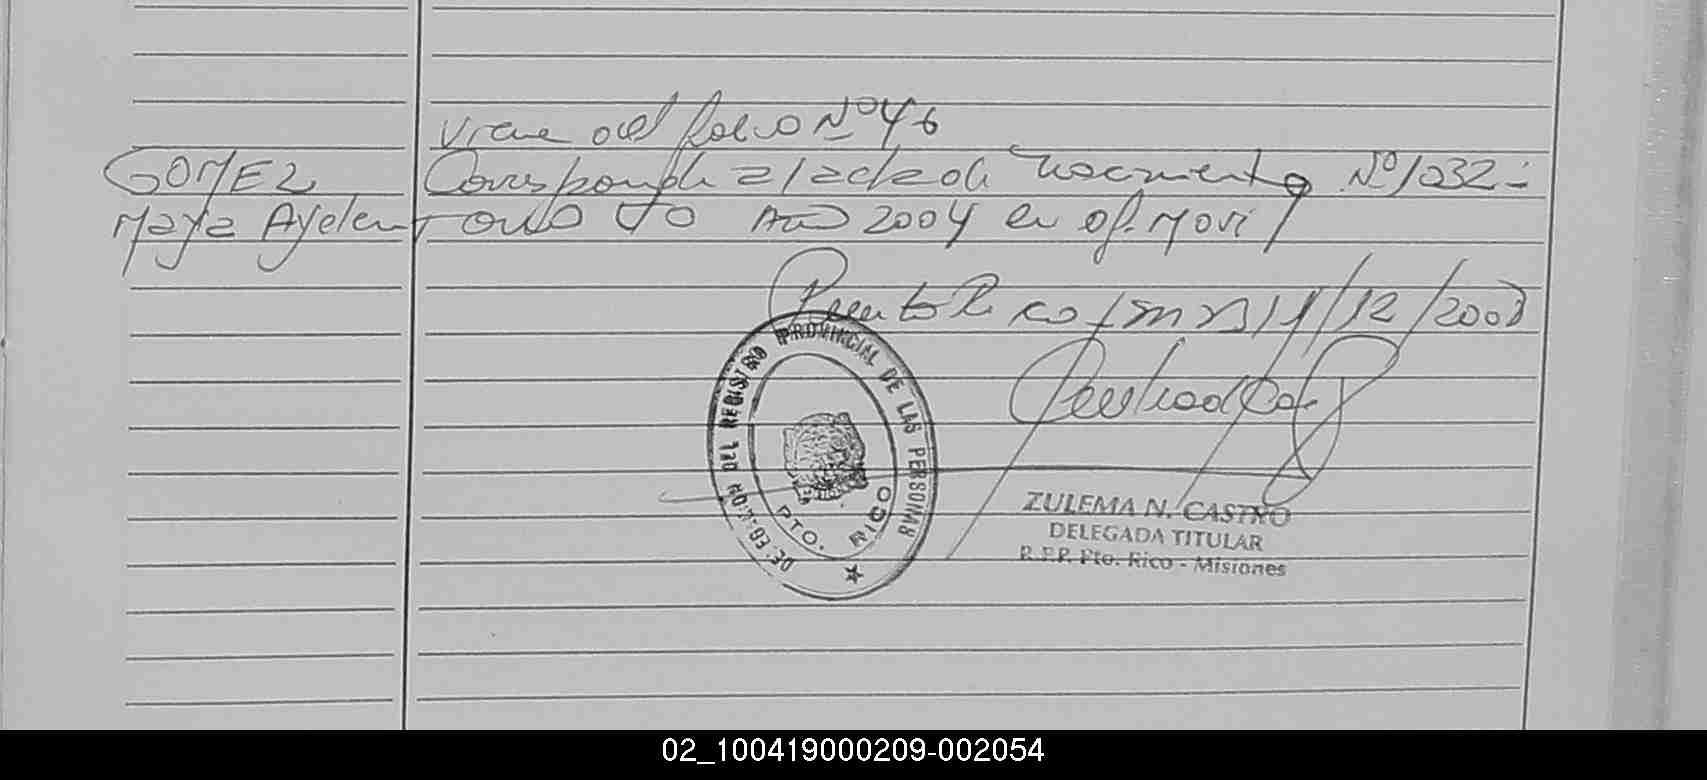 Viene del folio Nº 46
GOMEZ Corresponde al acta de Nacimiento Nº 1032-
Maya Ayelen Tomo Año 2004 en of. Movil
Puerto Rico, Mnes, 11/12/2008
DEL REGISTRO PROVINCIAL DE LAS PERSONAS
PTO. RICO
ZULEMA N. CASTRO
DELEGADA TITULAR
R.P.P. Pto. Rico - Misiones
02_100419000209-002054